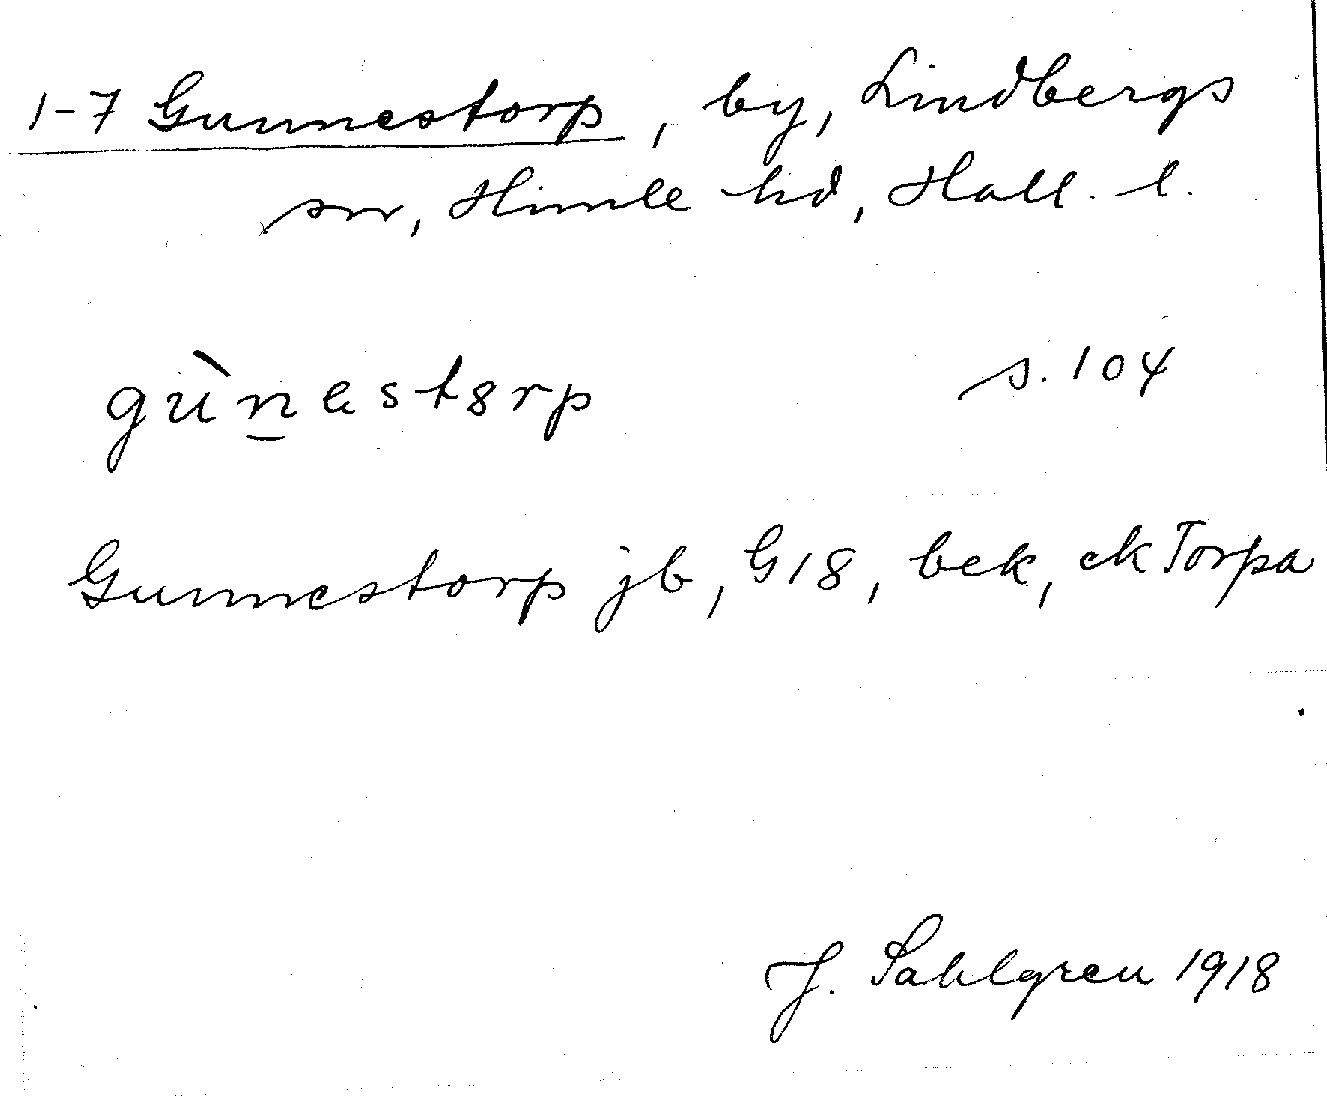 1-7 Gunnestorp, by, Lindbergs
sn, Himle hd, Hall. l.
gùn̲estorp s. 104
Gunnestorp jb, G18, bek, ek Torpa
J. Sahlgren 1918